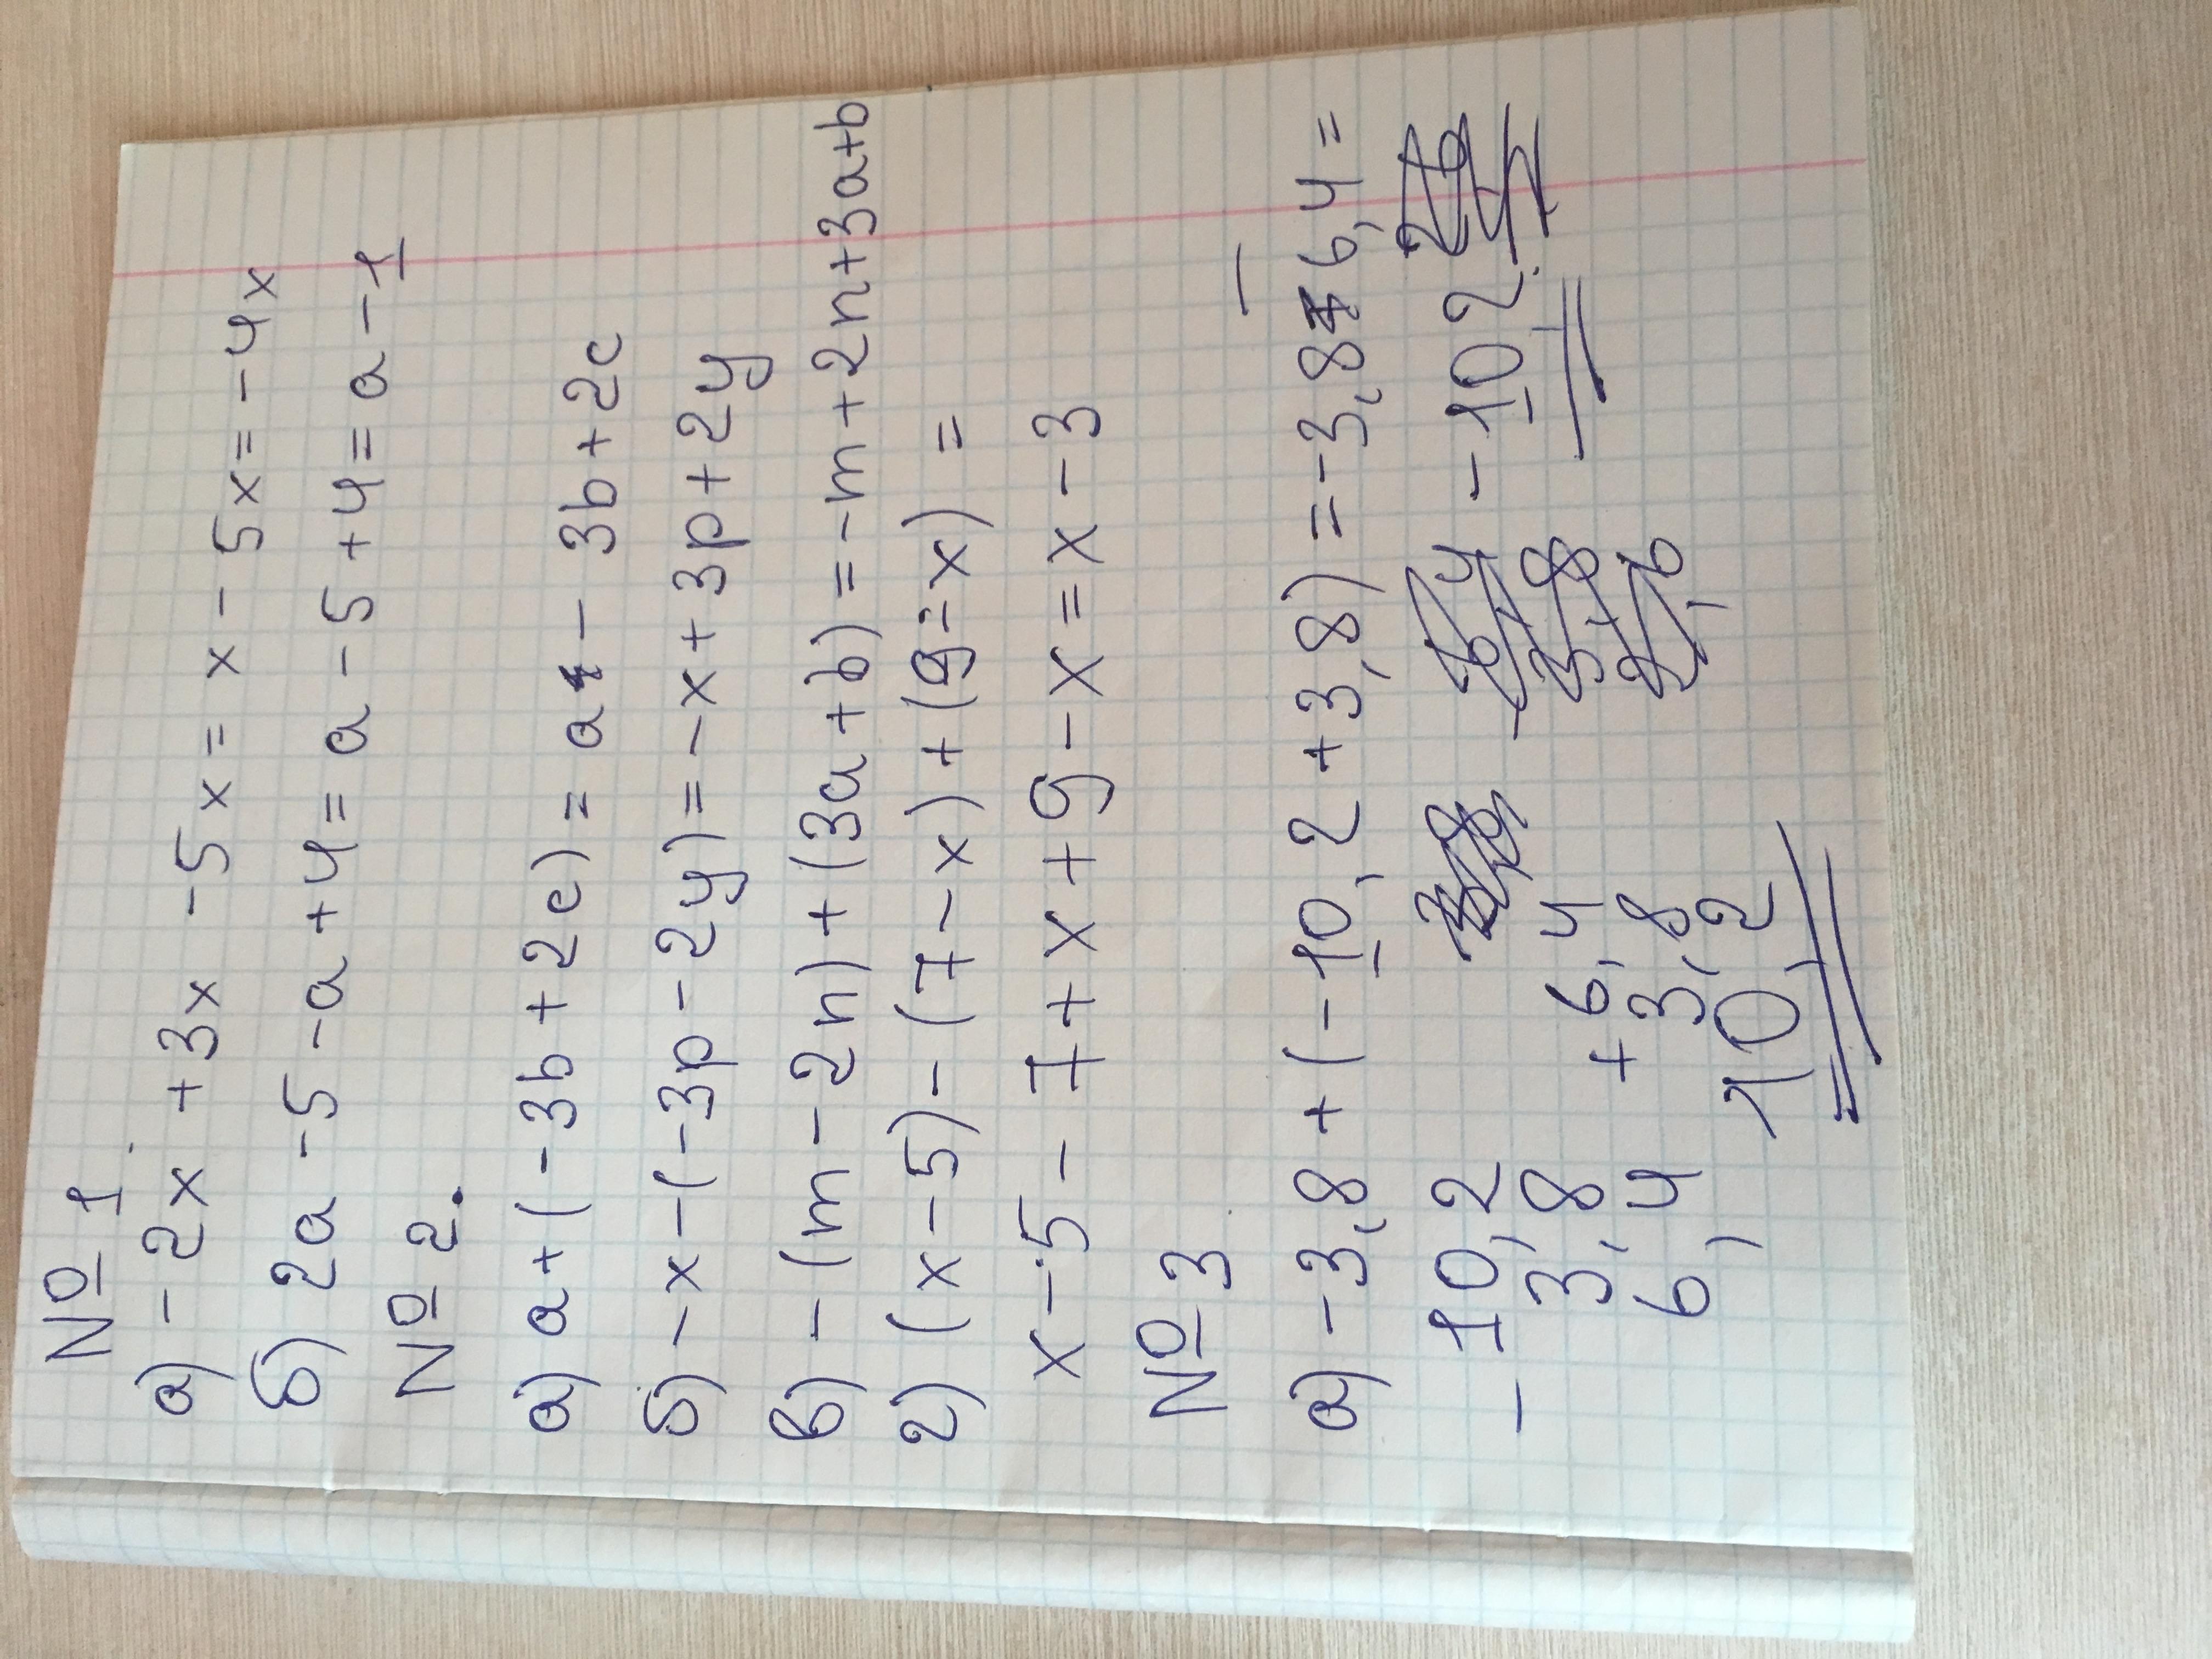 № 1
а) -2x +3x -5x = x - 5x = -4x
б) 2a -5 -a +4 = a -5 +4 = a -1
№ 2.
а) a+(-3b +2c) = a - 3b +2c
б) -x-(-3p-2y) = -x +3p +2y
в) -(m-2n)+(3a+b) = -m+2n+3a+b
г) (x-5)-(7-x)+(9-x) =
x-5-7+x+9-x = x-3
№ 3
а) -3,8 +(-10,2 +3,8) = -3,8 - 6,4 =
- 10,2
3,8
6,4
+ 6,4
3,8
10,2
- 10,2